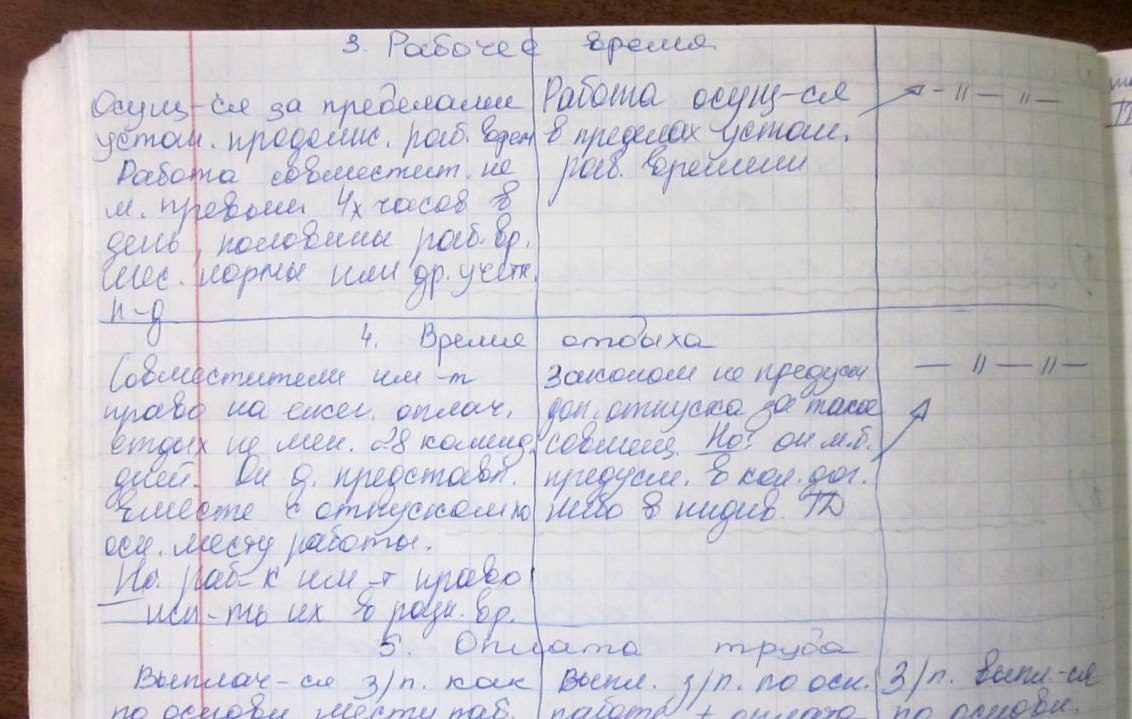 3. Рабочее время
Осущ-ся за пределами
устан. продолжс. раб. врем
Работа совместит. не
м. превыш. 4х часов в
день, половины раб. вр.
мес. нормы или др. учетн.
п-д
Работа осущ-ся
в пределах устан.
раб. времени
- 〃 - 〃 -
4. Время отдыха
Совместители им-т
право на ежег. оплач.
отдых не мен. 28 календ.
дней. Он д. представл.
вместе с отпуском по
осн. месту работы.
Но раб-к им-т право
исп-ть их в разн. вр.
Законом не предусм
доп. отпуска за такое
совмещ. Но: он м.б.
предусм. в кол. дог.
либо в индив. ТД
- 〃 - 〃 -
5. Оплата труда
Выплач-ся з/п. как
по основн месту раб.
Выпл. з/п. по осн.
работе + оплата
З/п. выпл-ся
по основн.